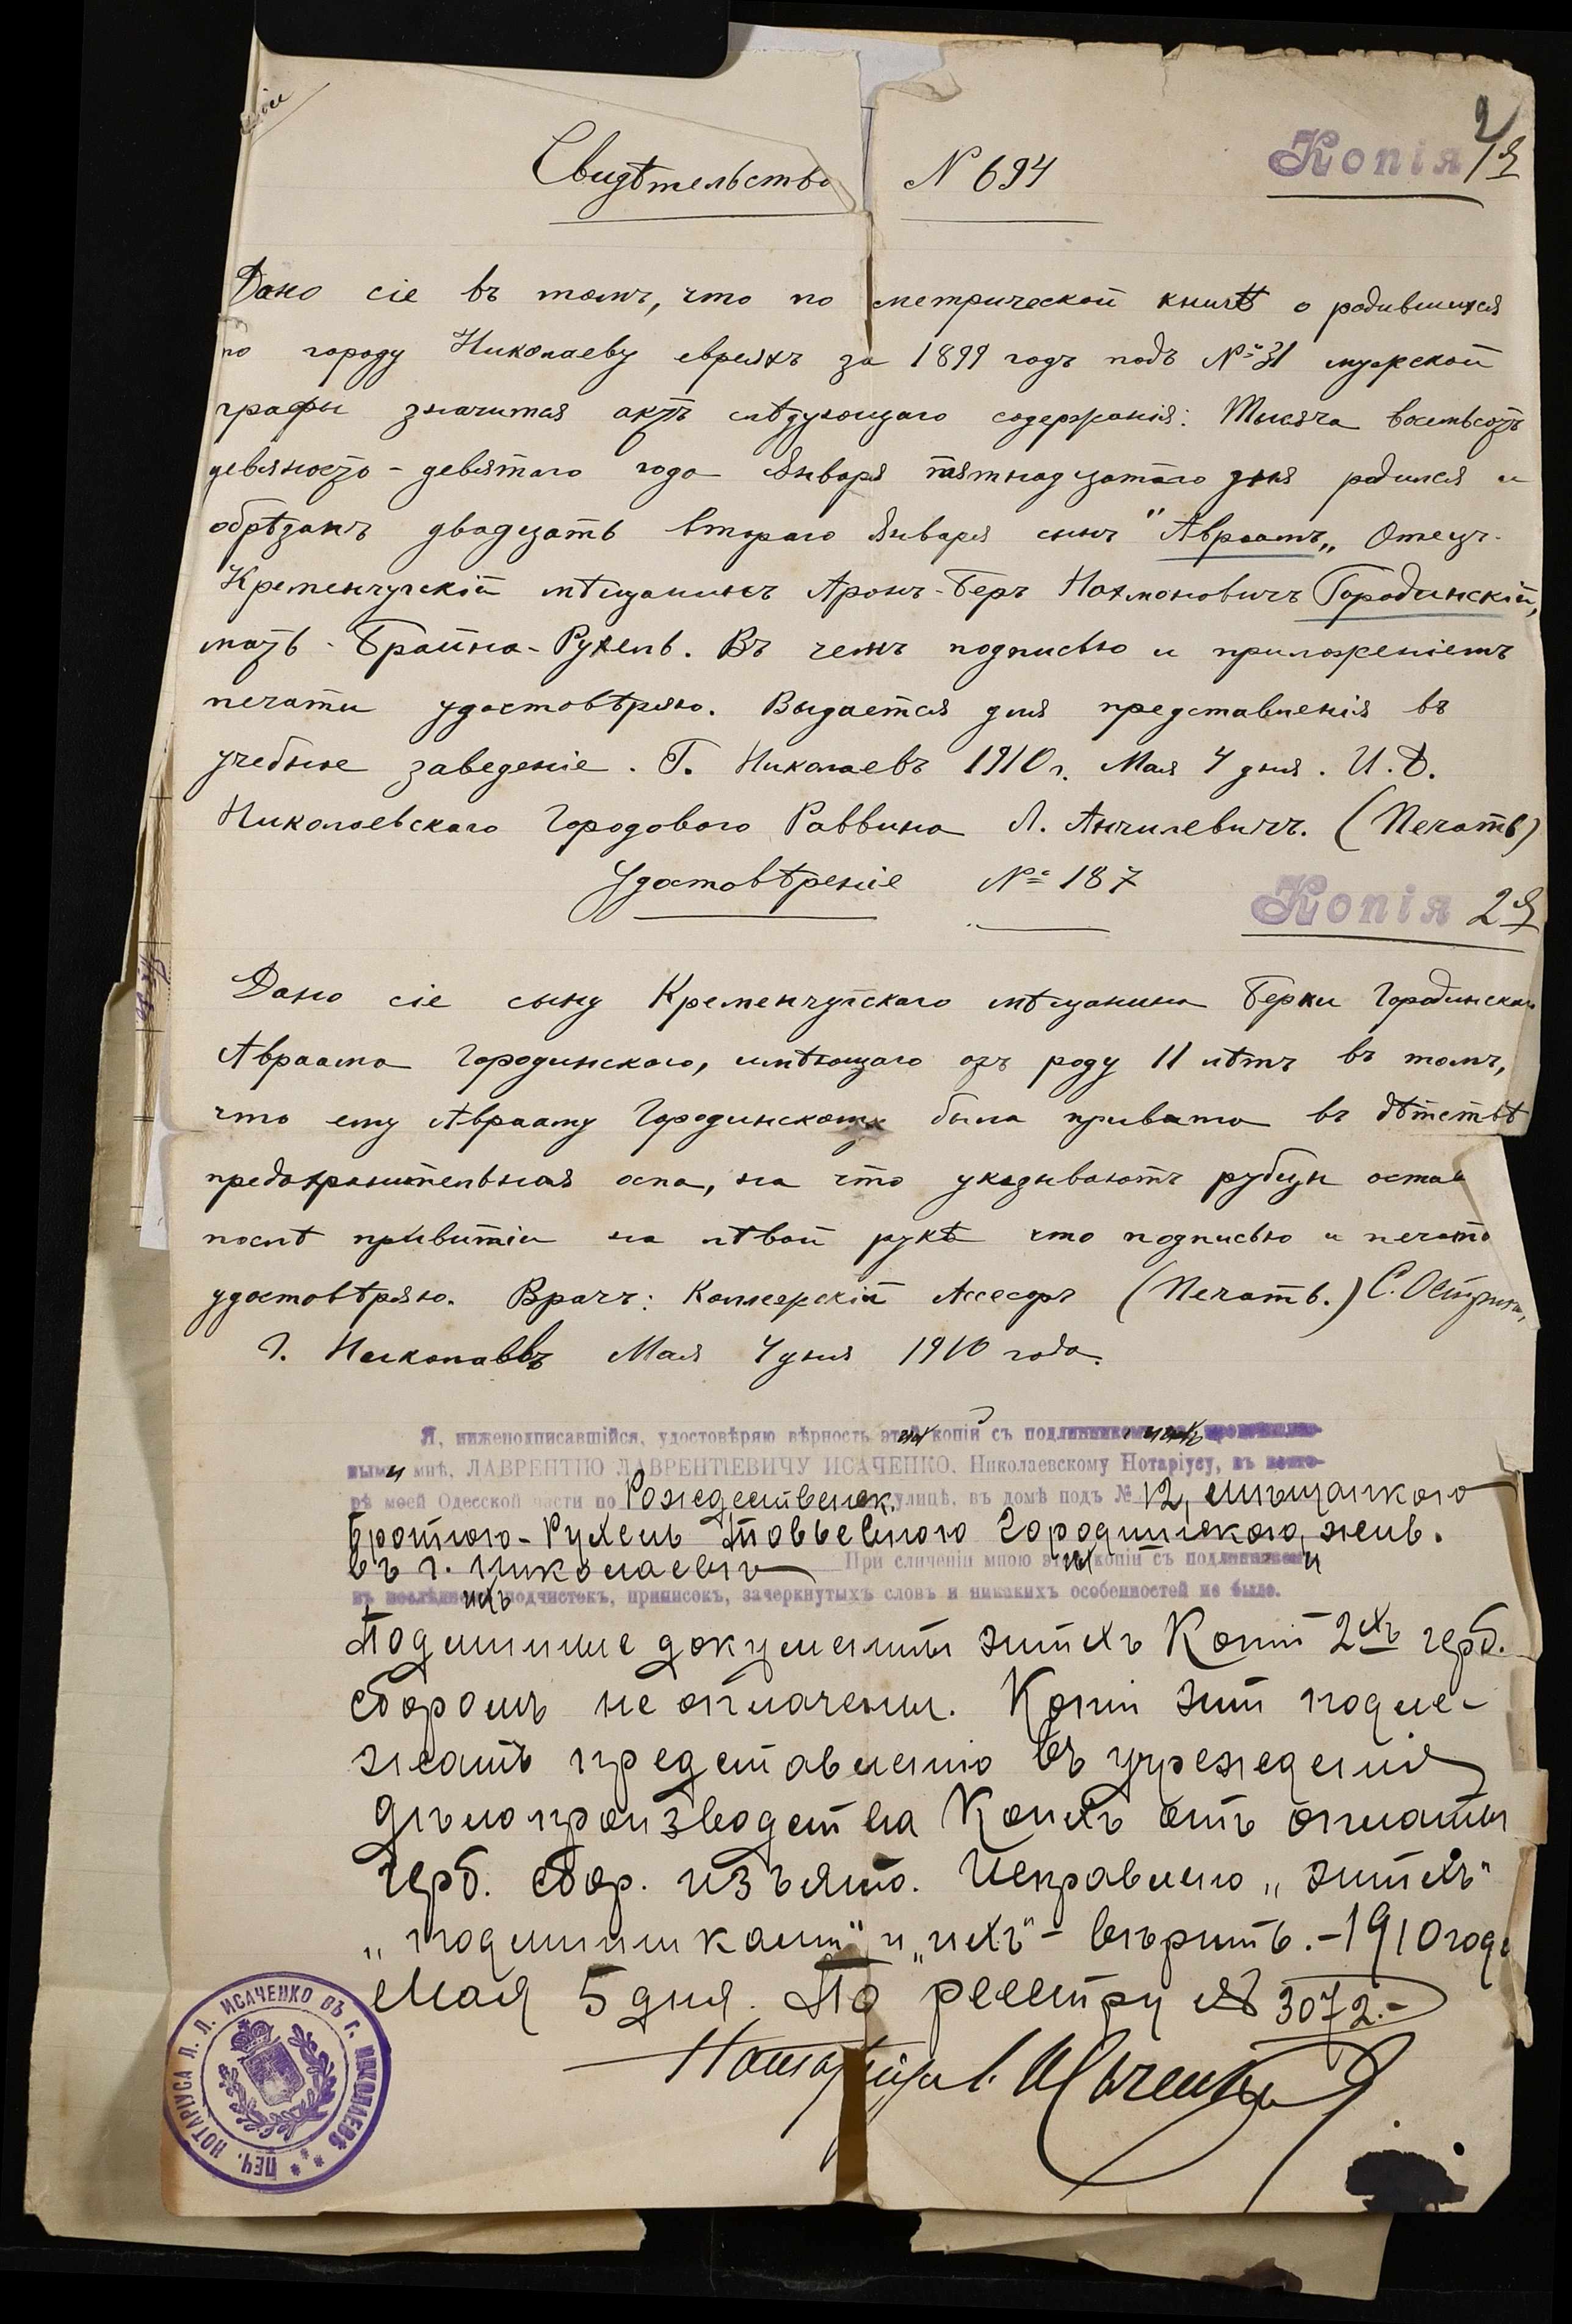 Копія 1я
2
Свидѣтельство N 694
Дано сіе въ томъ, что по метрической книгѣ о родившихся
по городу Николаеву евреяхъ за 1899 годъ подъ № 31 мужской
графы значится актъ слѣдующаго содержанія: Тысяча восемьсотъ
девяносто-девятаго года Января пятнадцатаго дня родился и
обрѣзанъ двадцать втораго Января сынъ "Авраамъ„ Отецъ-
Кременчугскій мѣщанинъ Аронъ-Беръ Нахмановичъ Городинскій,
мать - Брайна-Рухель. Въ чемъ подписью и приложеніемъ
печати удостовѣряю. Выдается для представленія въ
учебное заведеніе. Г. Николаевъ 1910 г. Мая 4 дня. И.Д.
Николаевскаго Городового Раввина Л. Анчилевичъ. (Печать)
Удостовѣреніе № 187
Копія 2я
Дано сіе сыну Кременчугскаго мѣщанина Берки Городинскаго
Авраама Городинскаго, имѣющаго отъ роду 11 лѣтъ въ томъ,
что ему Аврааму Городинскому была привита въ дѣтствѣ
предохранительная оспа, на что указываютъ рубцы остав
послѣ привитія на лѣвой рукѣ что подписью и печатью
удостовѣряю. Врачъ: Коллежскій Ассесоръ (Печать.) С.
г. Николаевъ Мая 4 дня 1910 года.
Я, нижеподписавшійся, удостовѣряю вѣрность этихъ копій съ подлинниками ихъ
ными мнѣ, ЛАВРЕНТІЮ ЛАВРЕНТІЕВИЧУ ИСАЧЕНКО, Николаевскому Нотаріусу, въ конто-
рѣ моей Одесской части по Рождественск. улицѣ, въ домѣ подъ № 12, мѣщанкою
Брайною-Рухель Товьевною Городинскою, жив.
въ г. Николаевѣ При сличеніи мною этихъ копій съ подлинниками
въ послѣднихъ подчистокъ, приписокъ, зачеркнутыхъ словъ и никакихъ особенностей не было.
Подлинные документы этихъ Копій 2хъ герб.
сборомъ не оплачены. Копіи эти подле-
жатъ представленію въ учрежденія
дѣлопроизводства коихъ отъ оплаты
герб. сбор. изъято. Исправлено „этихъ"
„подлинниками" и „ихъ" - вѣрить. - 1910 года
Мая 5 дня. По реестру № 3072.-
Нотаріусъ Л. Исаченко
ПЕЧ. НОТАРІУСА Л. Л. ИСАЧЕНКО ВЪ Г. НИКОЛАЕВѢ